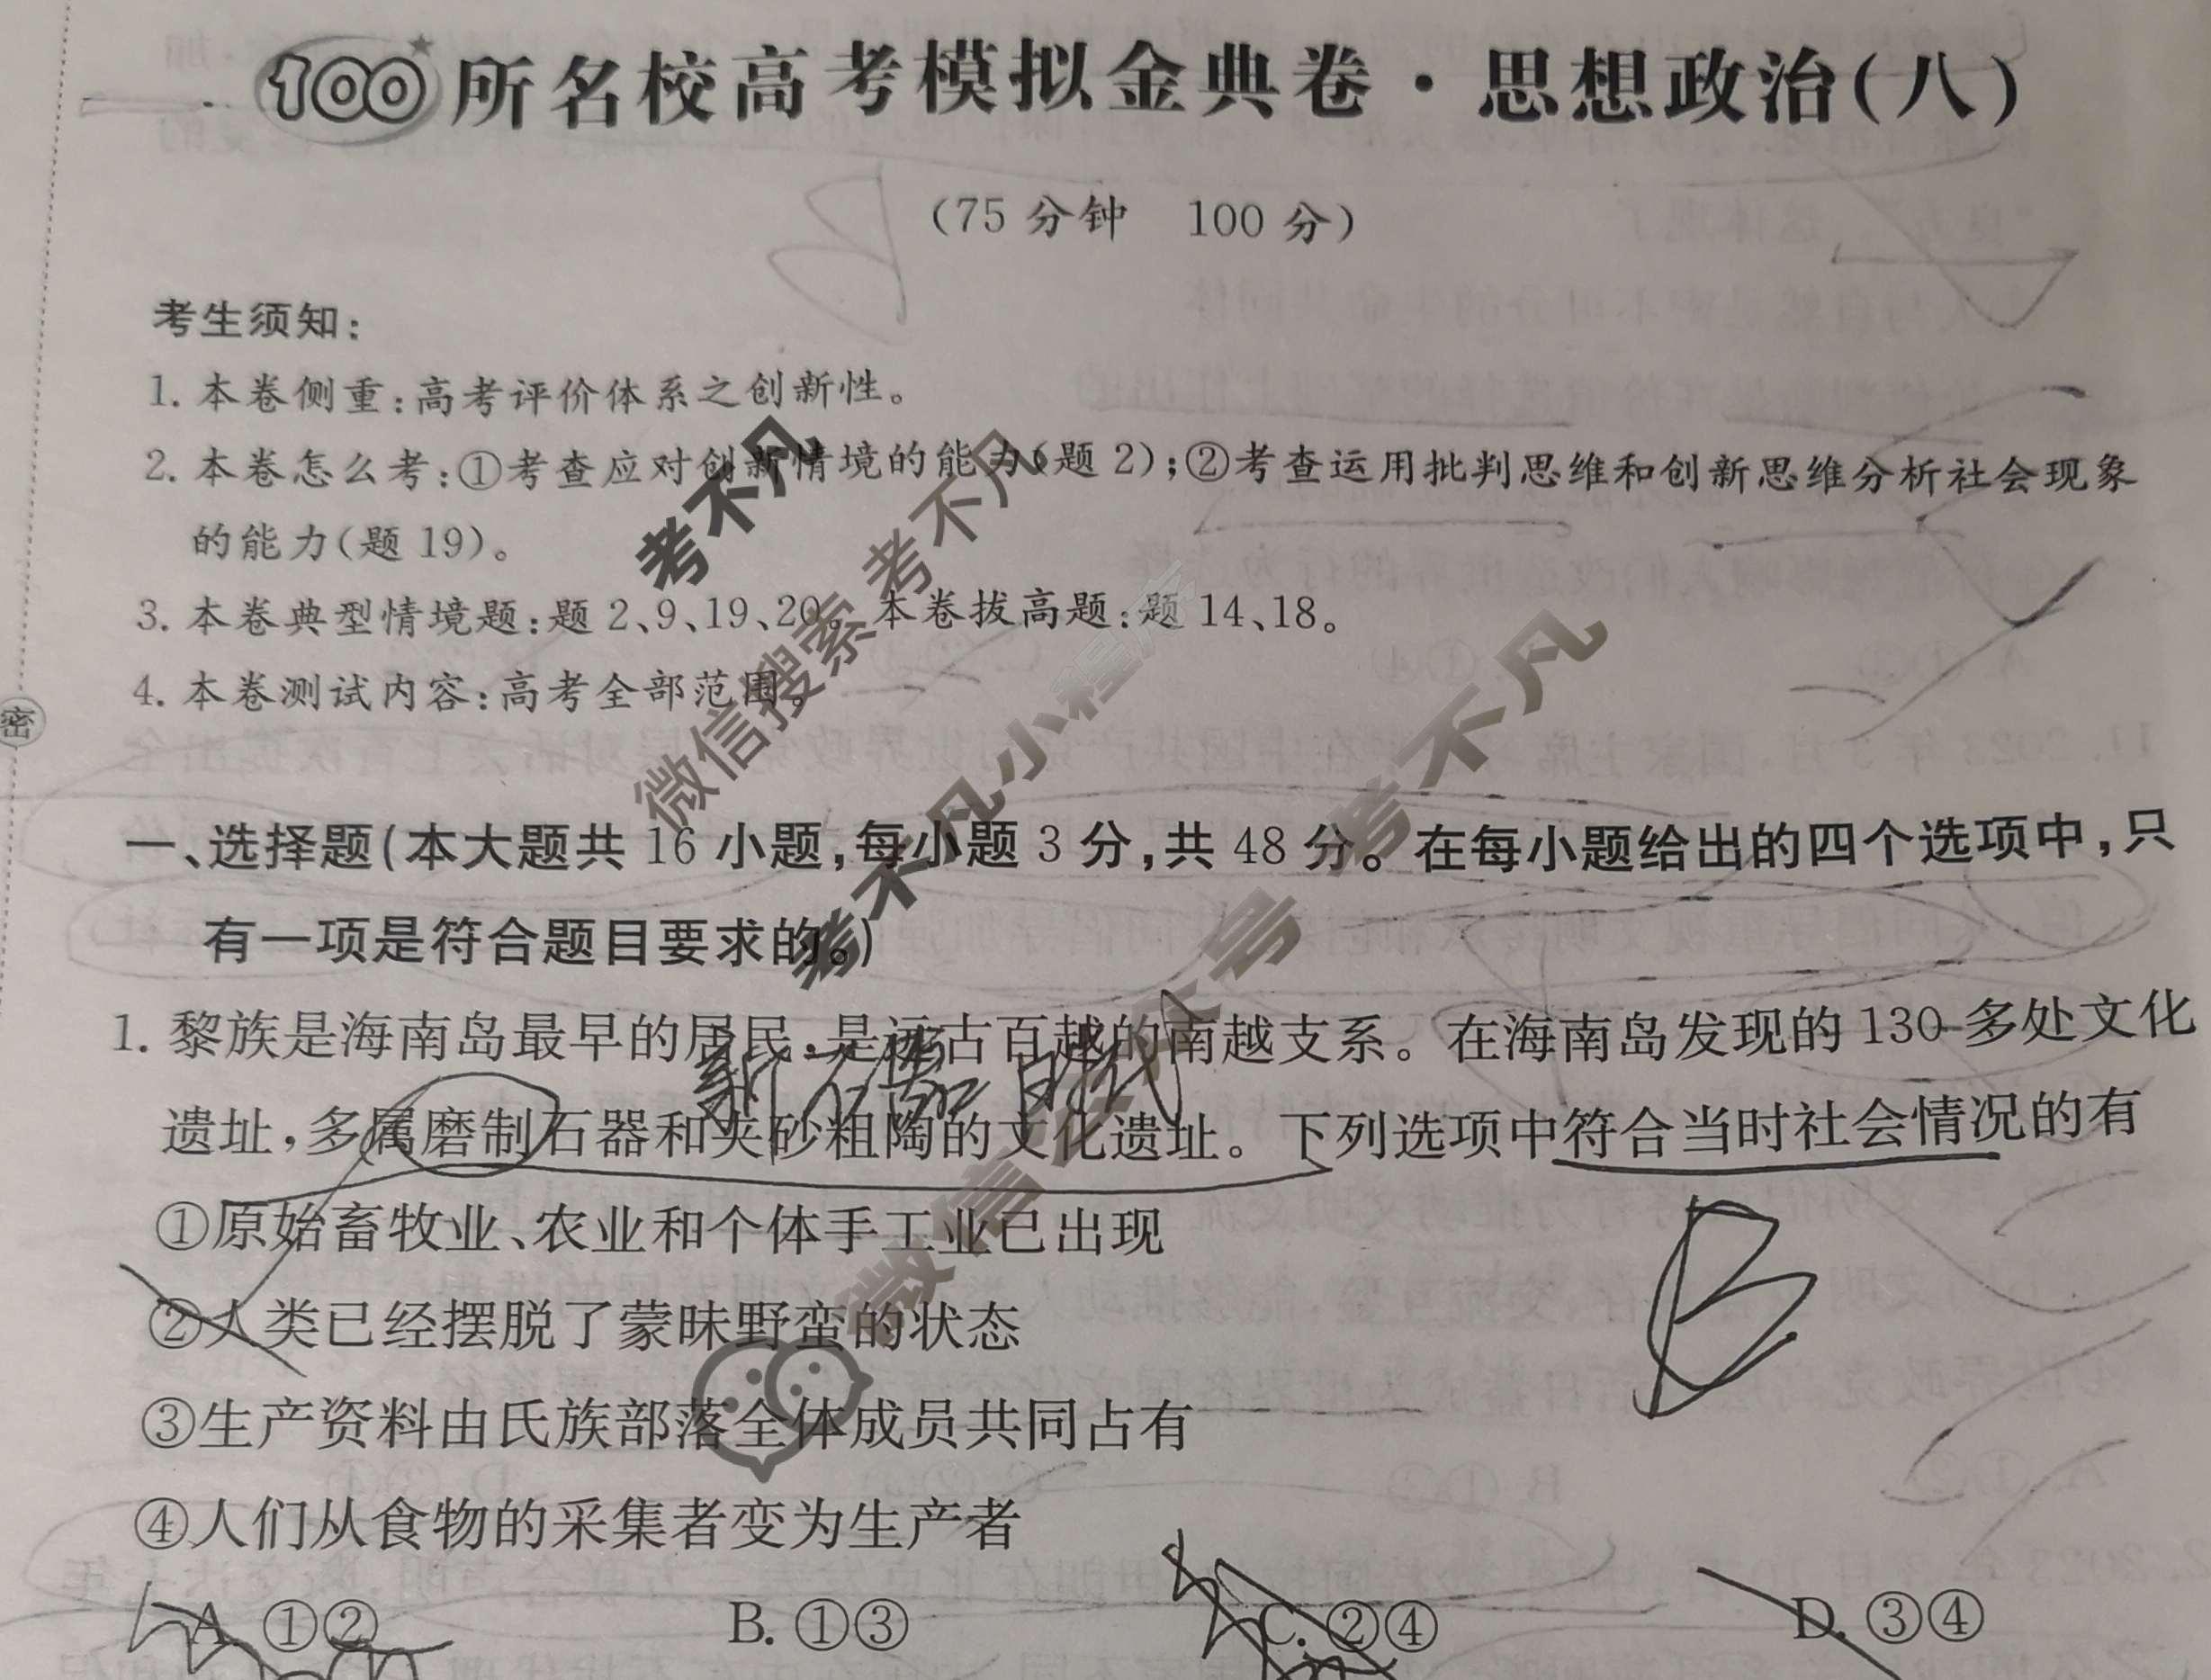 100所名校高考模拟金典卷·思想政治(八)
(75分钟 100分)
考生须知:
1. 本卷侧重:高考评价体系之创新性。
2. 本卷怎么考:①考查应对创新情境的能力(题2);②考查运用批判思维和创新思维分析社会现象
的能力(题19)。
3. 本卷典型情境题:题2、9、19、20。本卷拔高题:题14、18。
4. 本卷测试内容:高考全部范围。
密
一、选择题(本大题共16小题,每小题3分,共48分。在每小题给出的四个选项中,只
有一项是符合题目要求的。)
1. 黎族是海南岛最早的居民,是远古百越的南越支系。在海南岛发现的130多处文化
新石器时代
遗址,多属磨制石器和夹砂粗陶的文化遗址。下列选项中符合当时社会情况的有
①原始畜牧业、农业和个体手工业已出现
②人类已经摆脱了蒙昧野蛮的状态
③生产资料由氏族部落全体成员共同占有
④人们从食物的采集者变为生产者
B
A. ①② B. ①③ C. ②④ D. ③④
考不凡
微信搜索 考不凡
考不凡小程序
微信公众号 考不凡